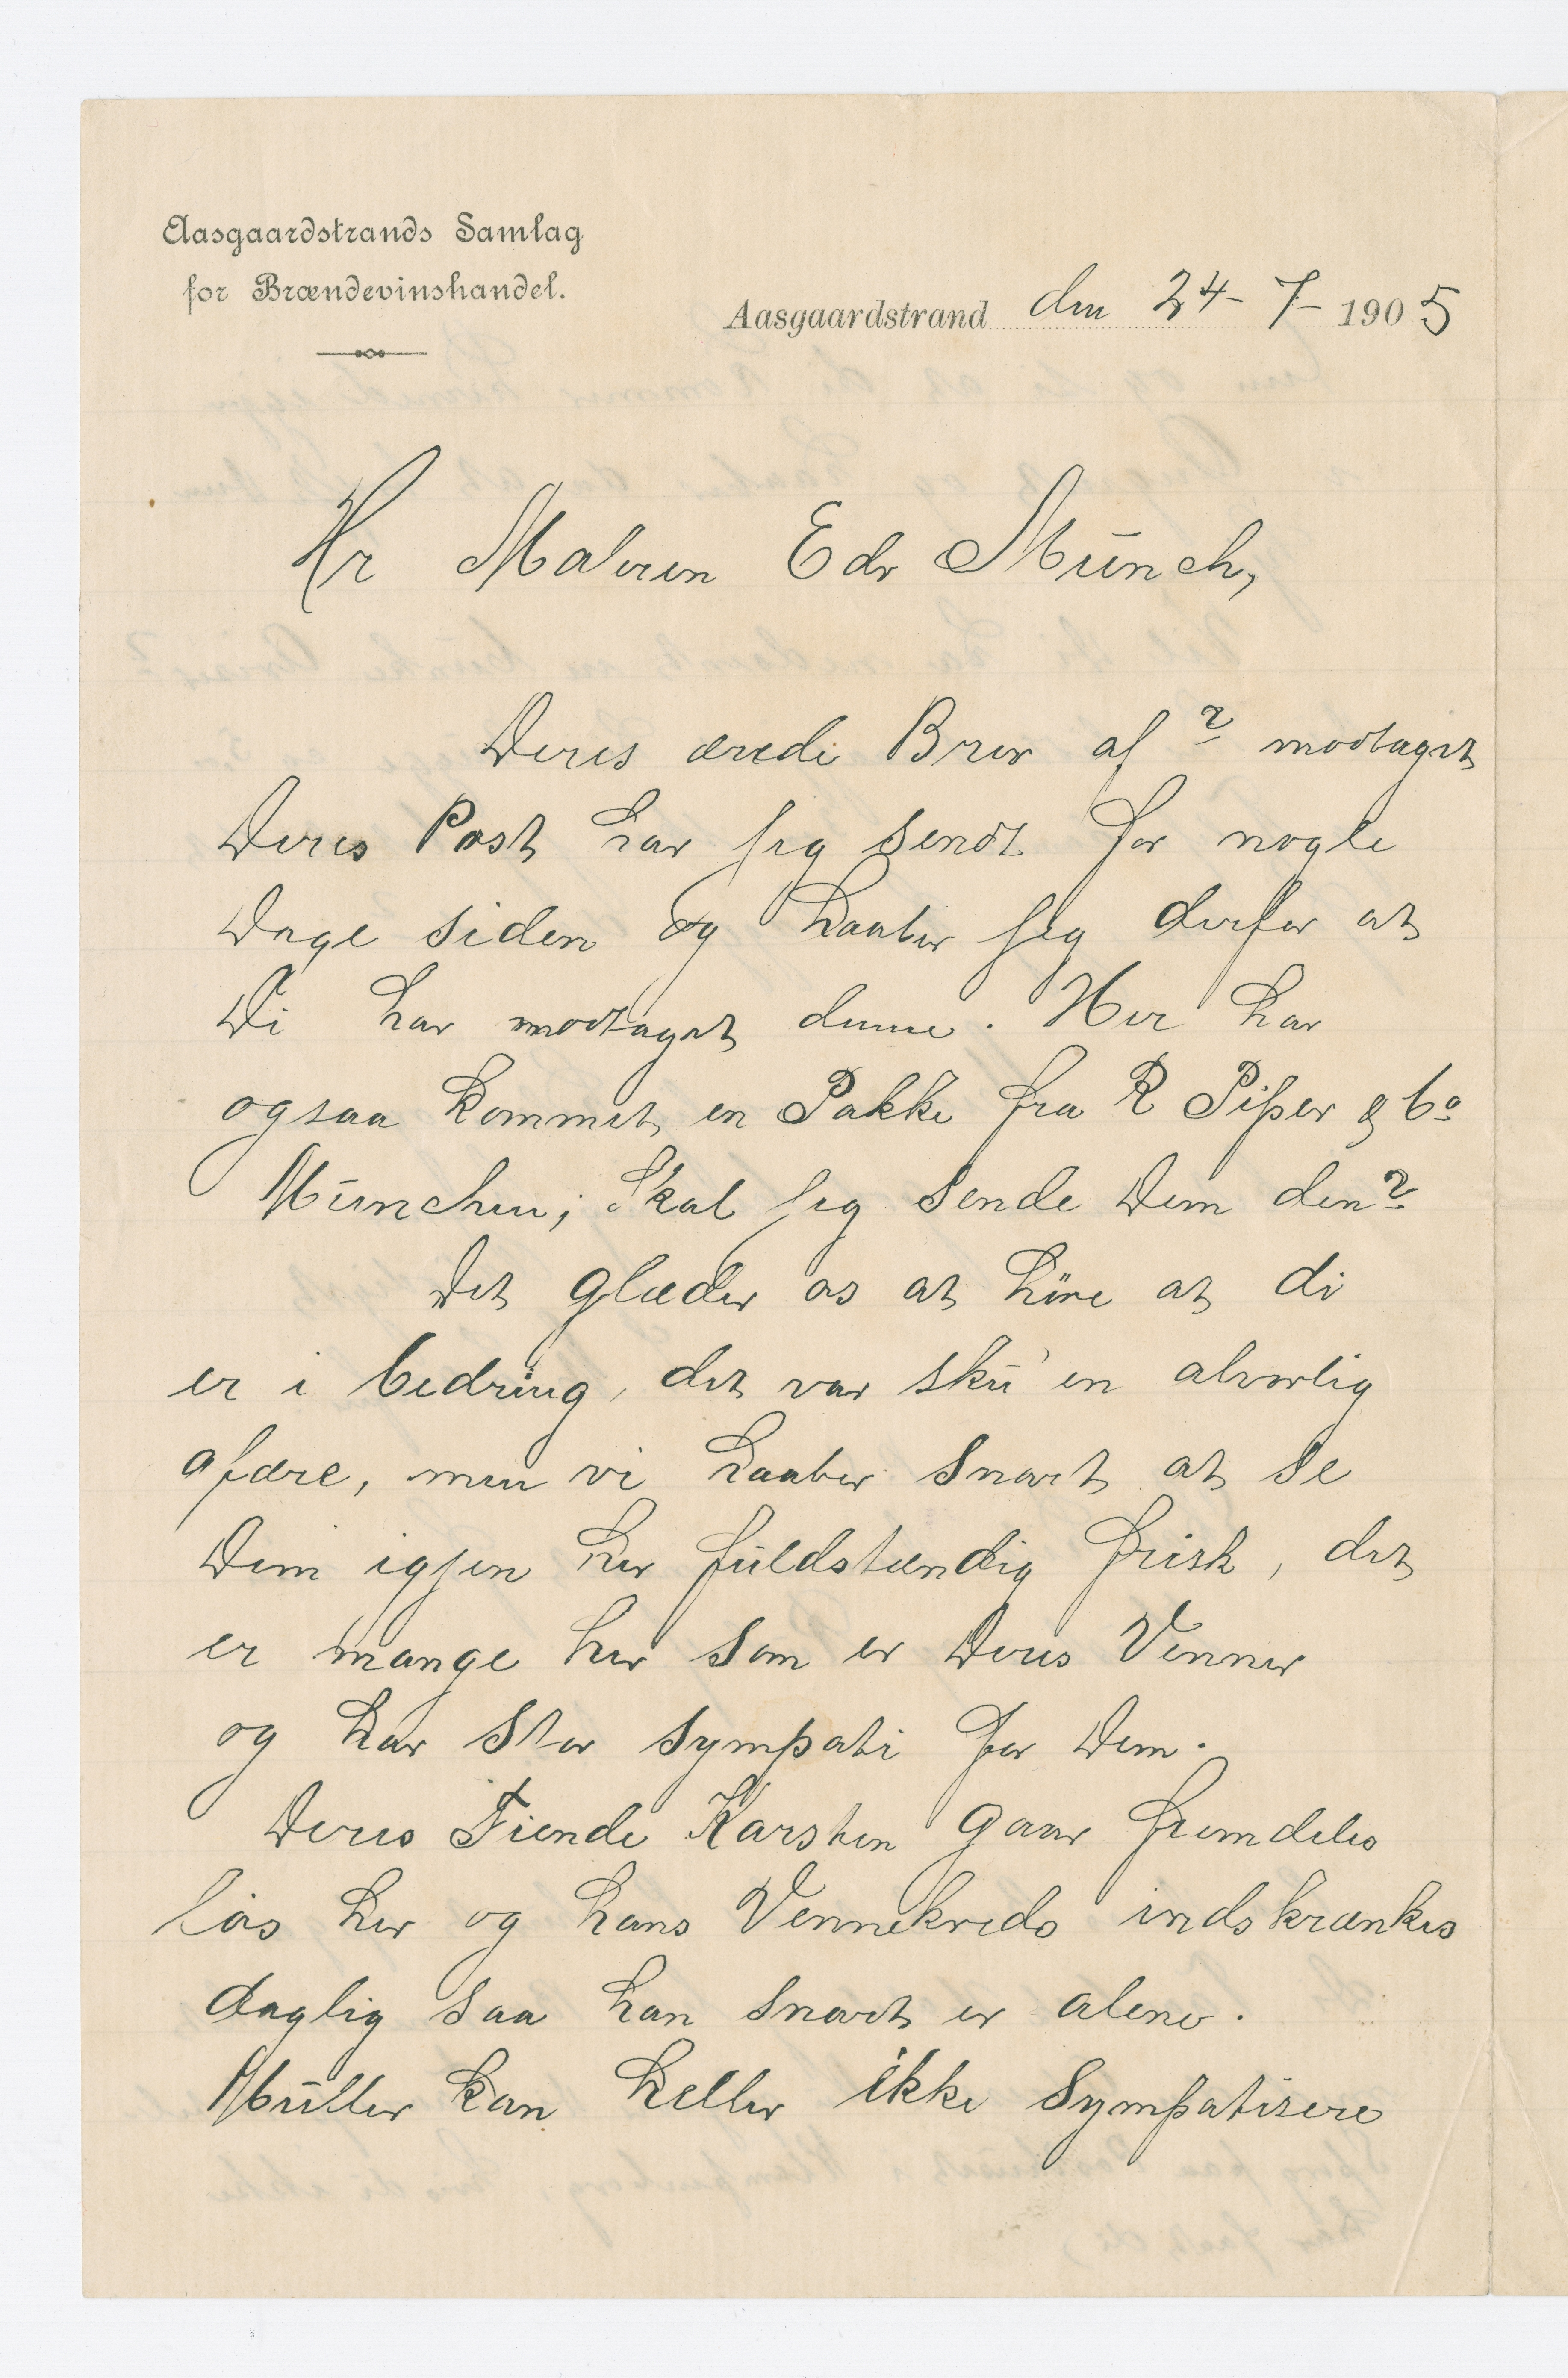 Aasgaardstrands Samlag
for Brændevinshandel.
Aasgaardstrand den 24-7-1905
Hr Maleren Edv Münch,
Deres ærede Brev af ? modtaget
Deres Post har jeg sendt for nogle
Dage siden og haaber jeg derfor at
Di har modtaget denne. Her har
ogsaa kommet en Pakke fra R Piper & Co
München; Skal jeg sende Dem den?
Det glæder os at høre at di
er i bedring, det var sku' en alvorlig
afære, men vi haaber snart at se
Dem igjen her fuldstændig frisk, det
er mange her som er Deres Venner
og har stor sympati for Dem.
Deres Fiende Karsten gaar fremdeles
løs her og hans Vennekreds indskrænkes
daglig saa han snart er alene.
Müller kan heller ikke sympatisere